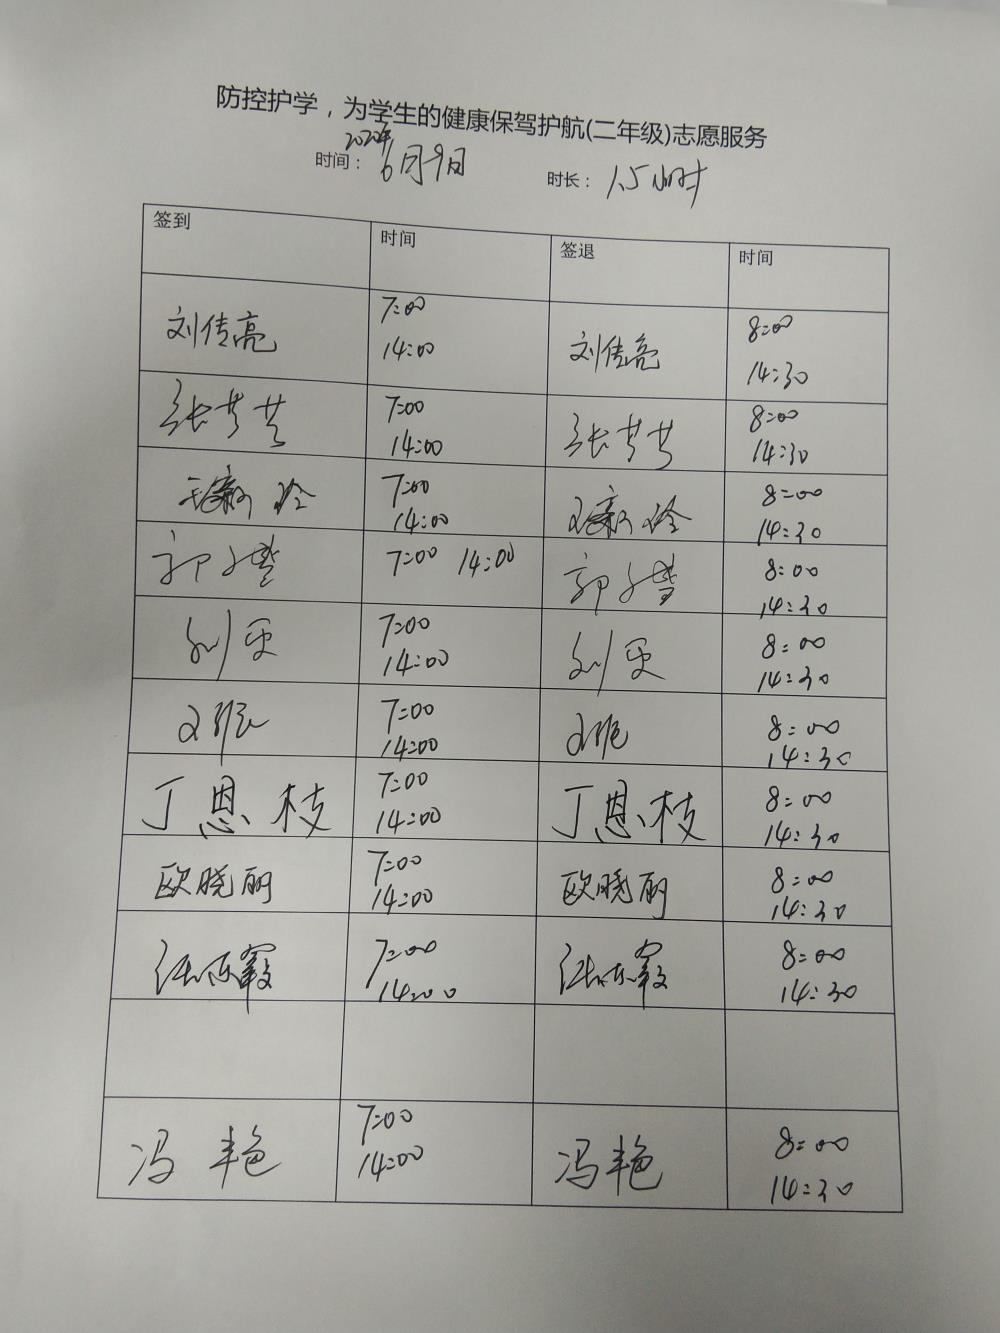 防控护学，为学生的健康保驾护航(二年级)志愿服务
时间：2020年6月9日 时长：1.5小时
签到 时间 签退 时间
刘传亮 7:00 14:00 刘传亮 8:00 14:30
张芳芳 7:00 14:00 张芳芳 8:00 14:30
7:00 14:00 8:00 14:30
郭 7:00 14:00 郭 8:00 14:30
刘 7:00 14:00 刘 8:00 14:30
7:00 14:00 8:00 14:30
丁恩枝 7:00 14:00 丁恩枝 8:00 14:30
欧晓丽 7:00 14:00 欧晓丽 8:00 14:30
7:00 14:00 8:00 14:30
冯艳 7:00 14:00 冯艳 8:00 14:30